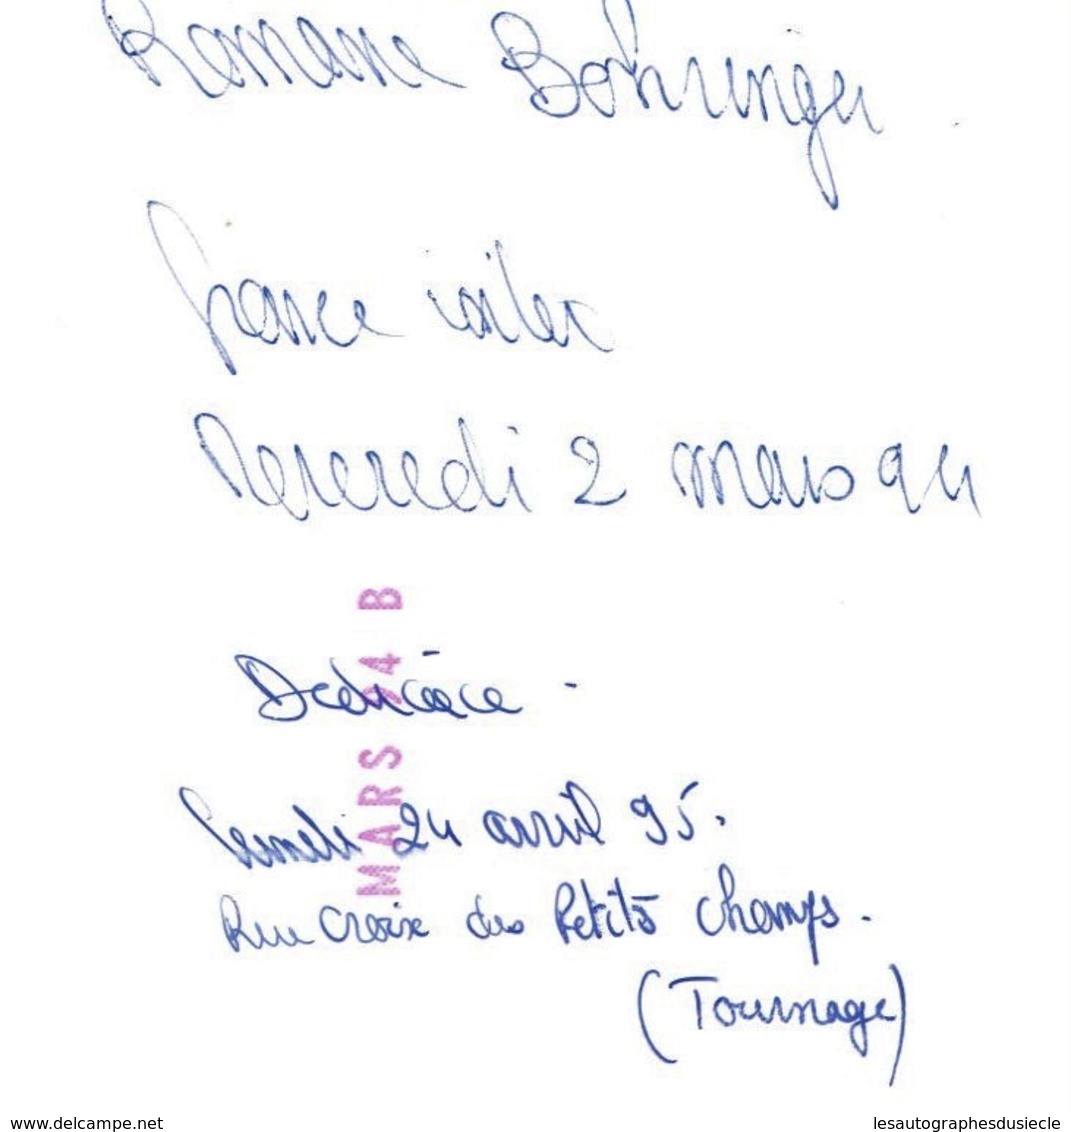 Romane Bohringer
france inter
Mercredi 2 mars 94
MARS 94 B
Dédicacé -
Lundi 24 avril 95.
Rue Croix des Petits Champs.
(Tournage)
www.delcampe.net
lesautographesdusiecle